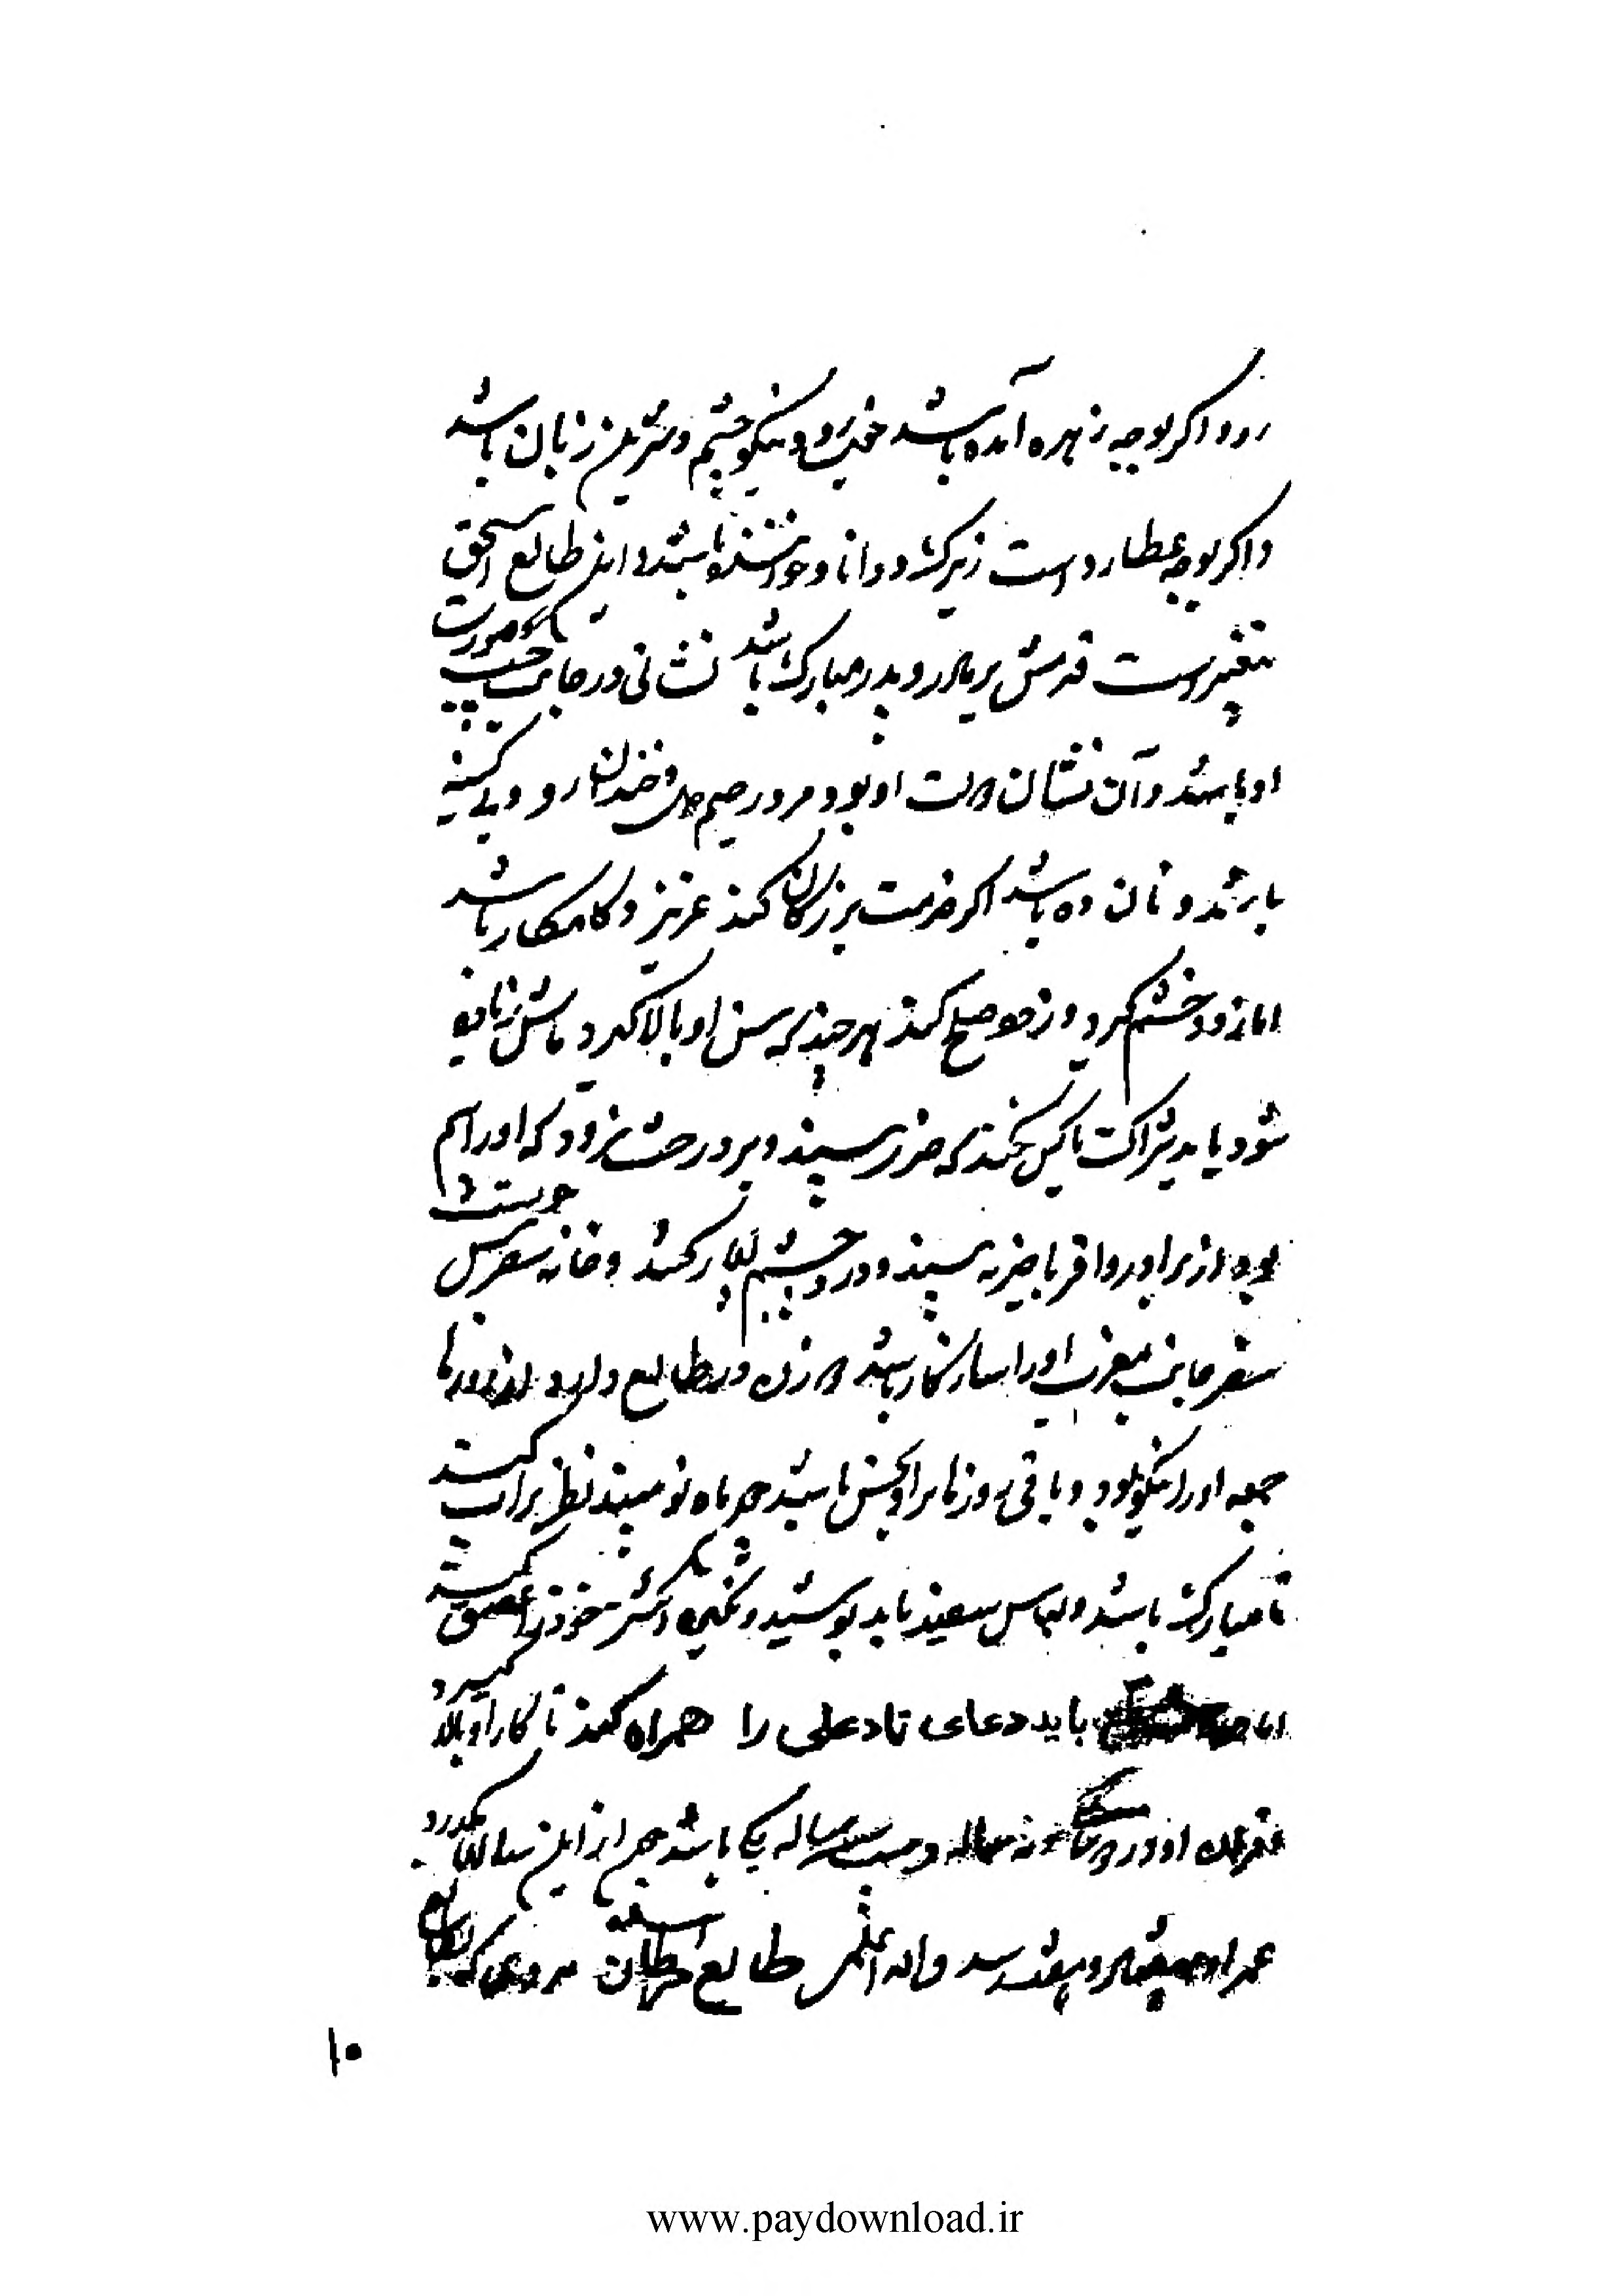 رود اگر بوجه زهره آمده باشد خوب رو و نیکو چشم و شیرین زبان باشد
و اگر بوجه عطارد است زیرک و دانا و باشد و این طالع اسحق
پیغمبر است قدمش بر مادر و پدر مبارک باشد نشانی در جانب چپ
او باشد و آن نشان دولت او بود مرد رحیم دل و خندان رو و بی کینه
باشد و نان ده باشد اگر خدمت بزرگان کند عزیز و کامکار باشد
اما زود خشم گیرد و زود صلح کند هر چند که سن او بالا گیرد مالش زیاده
شود باید شراکت با کس نکند که ضرر بیند و پرورش زود که او را هم
بود از برادر و اقربا خیر نه بیند و درد چشم بسیار کشد و خانه
سفر جانب مغرب او را سازگار باشد زن در طالع دارد از روزها
جمعه او را نیکو بود و باقی روزها براو نحس باشد چو ماه نو بیند نظر بر آب کند
تا مبارک باشد و لباس سفید باید پوشید و نگین انگشتر خود را عقیق کند
اما باید دعای ناد علی را همراه کند تا کار او بالا گیرد
او در و ساله یکی باشد چون از این سالها بگذرد
عمر او و هفت رسد والله اعلم طالع سرطان مردی که
۱۰
www.paydownload.ir